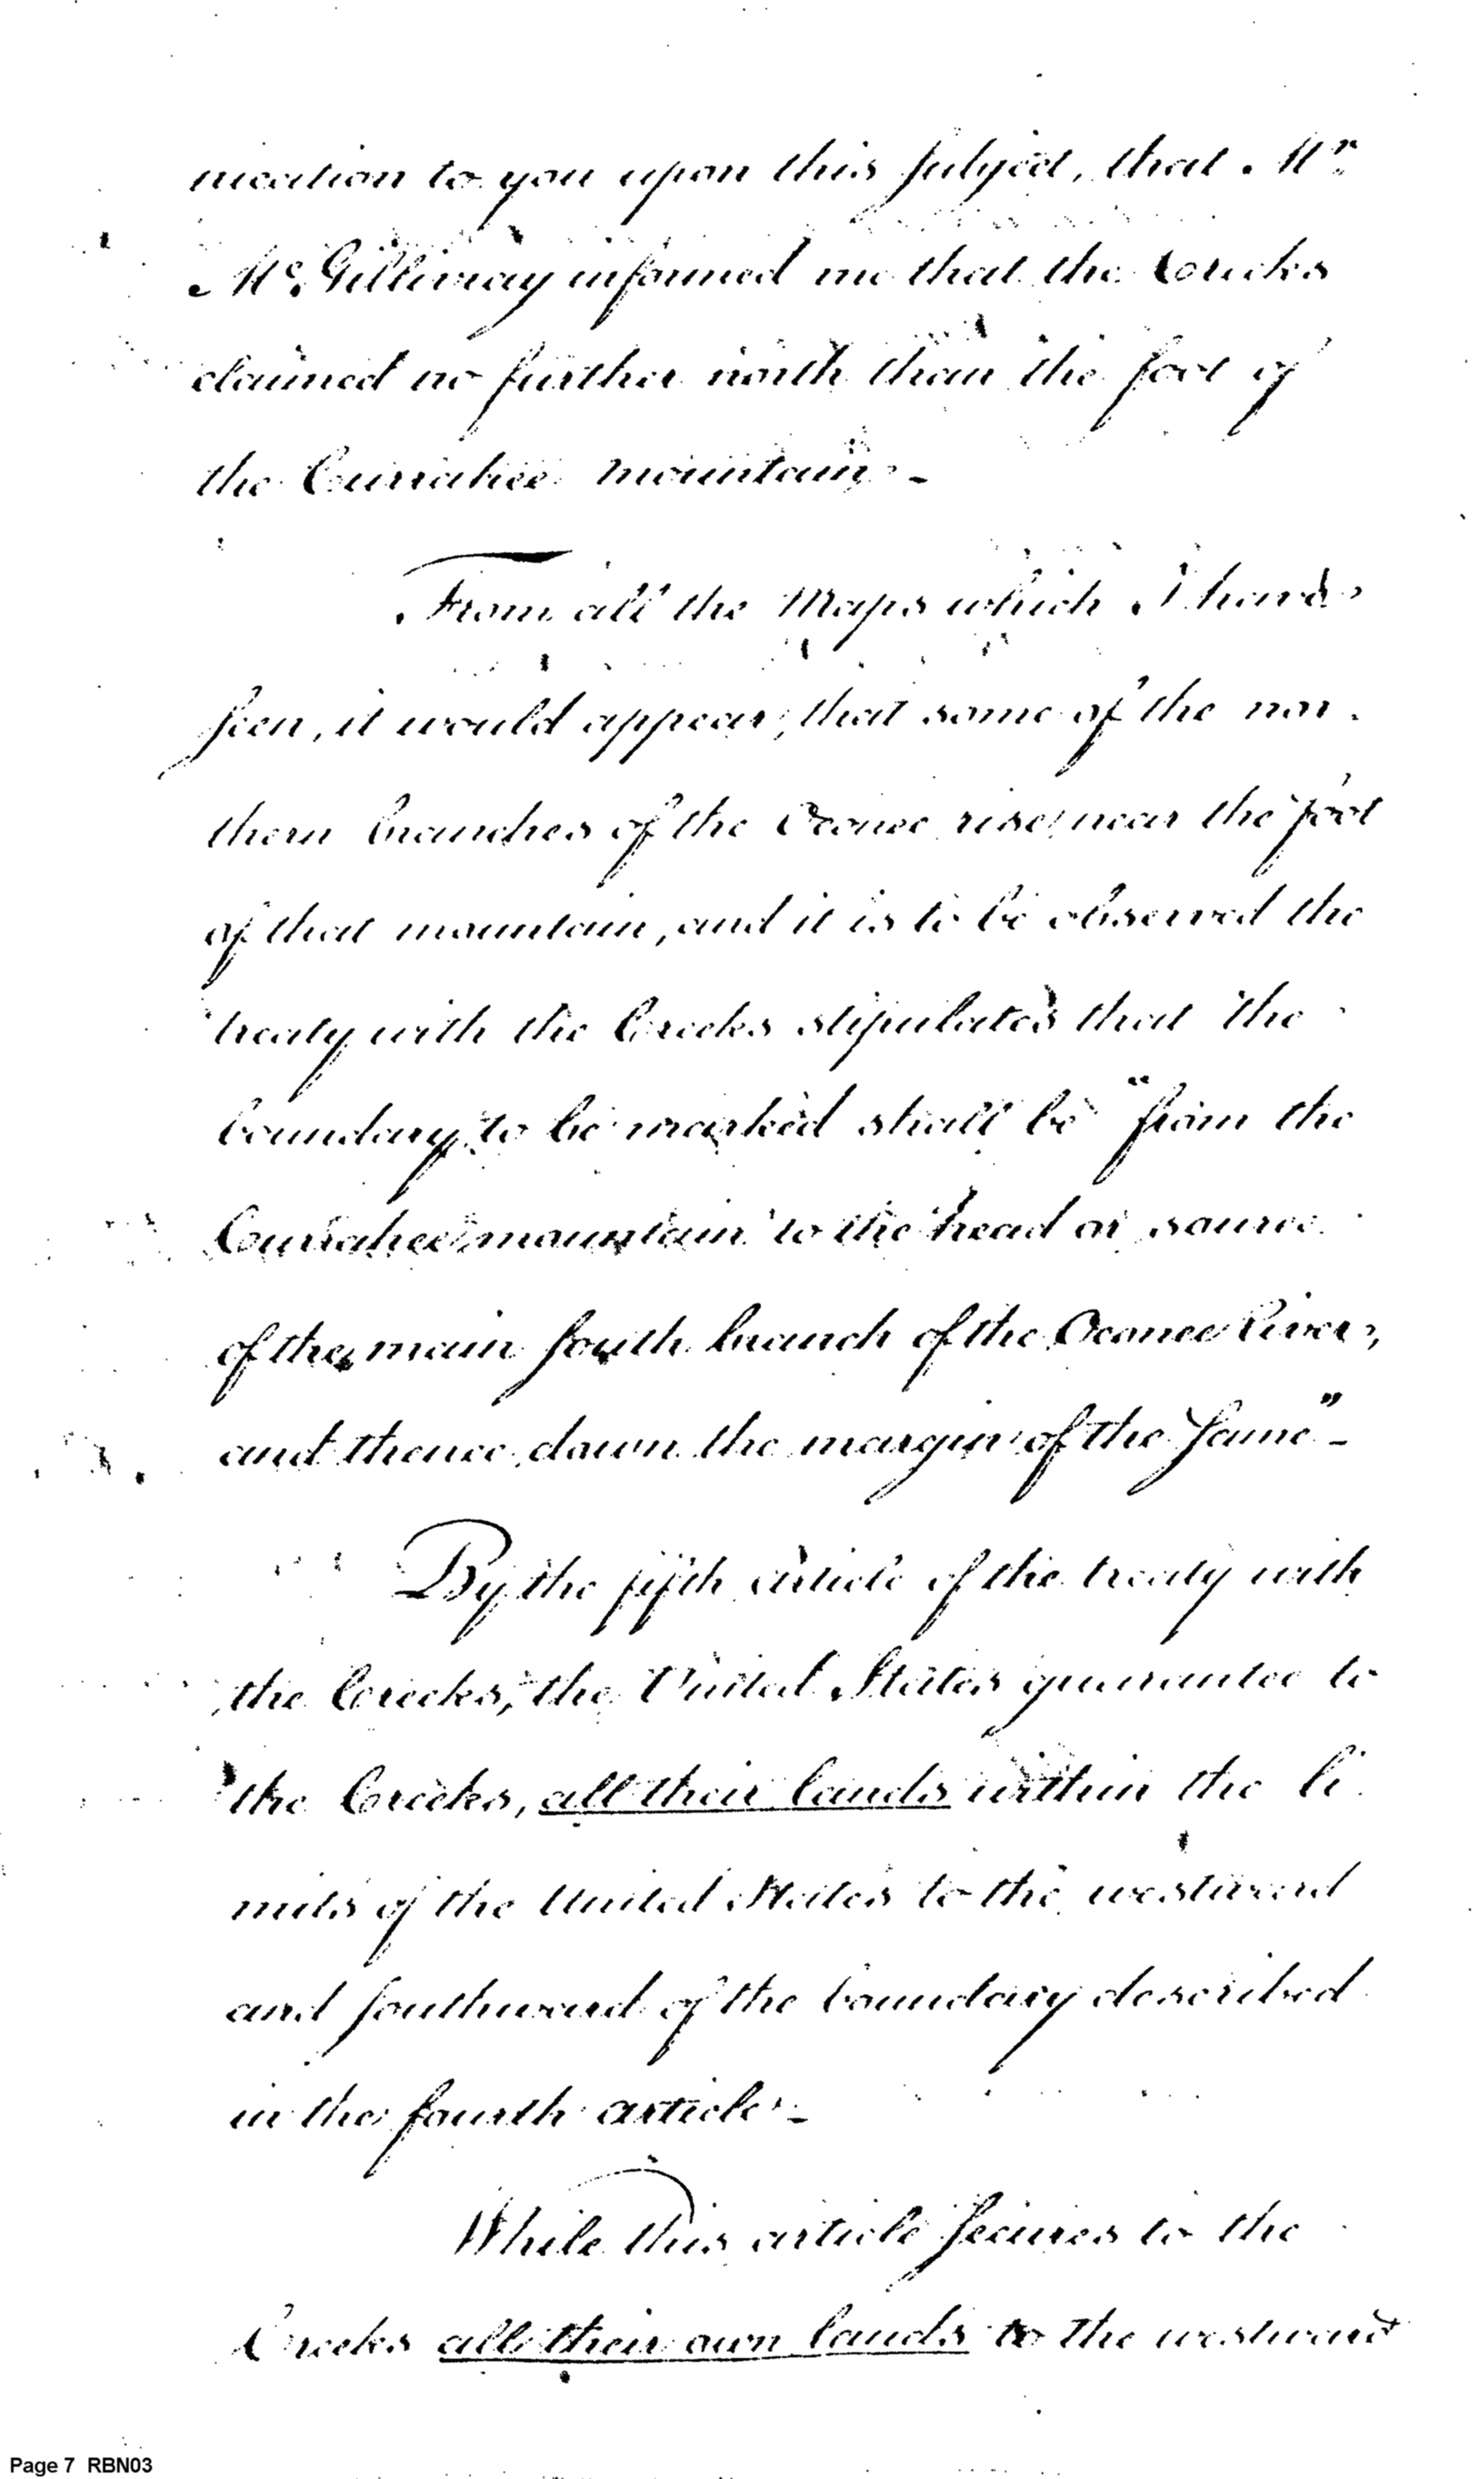 nication to you upon this subject, that Mr.
Mc.Gillivray informed me that the Creeks
claimed no further north than the foot of
the Currahee mountain -
From all the Maps which I have
seen, it would appear, that some of the nor-
thern branches of the Oconee rise near the foot
of that mountain, and it is to be observed the
treaty with the Creeks stipulates that the
boundary to be marked shall be "from the
Currahee mountain to the head or source
of the main south branch of the Oconee River,
and thence down the margin of the same" -
By the fifth article of the treaty with
the Creeks, the United States guarantee to
the Creeks, all their lands within the li
mits of the United States to the westward
and southward of the boundary described
in the fourth article -
While this article secures to the
Creeks all their own lands to the westward
Page 7 RBN03